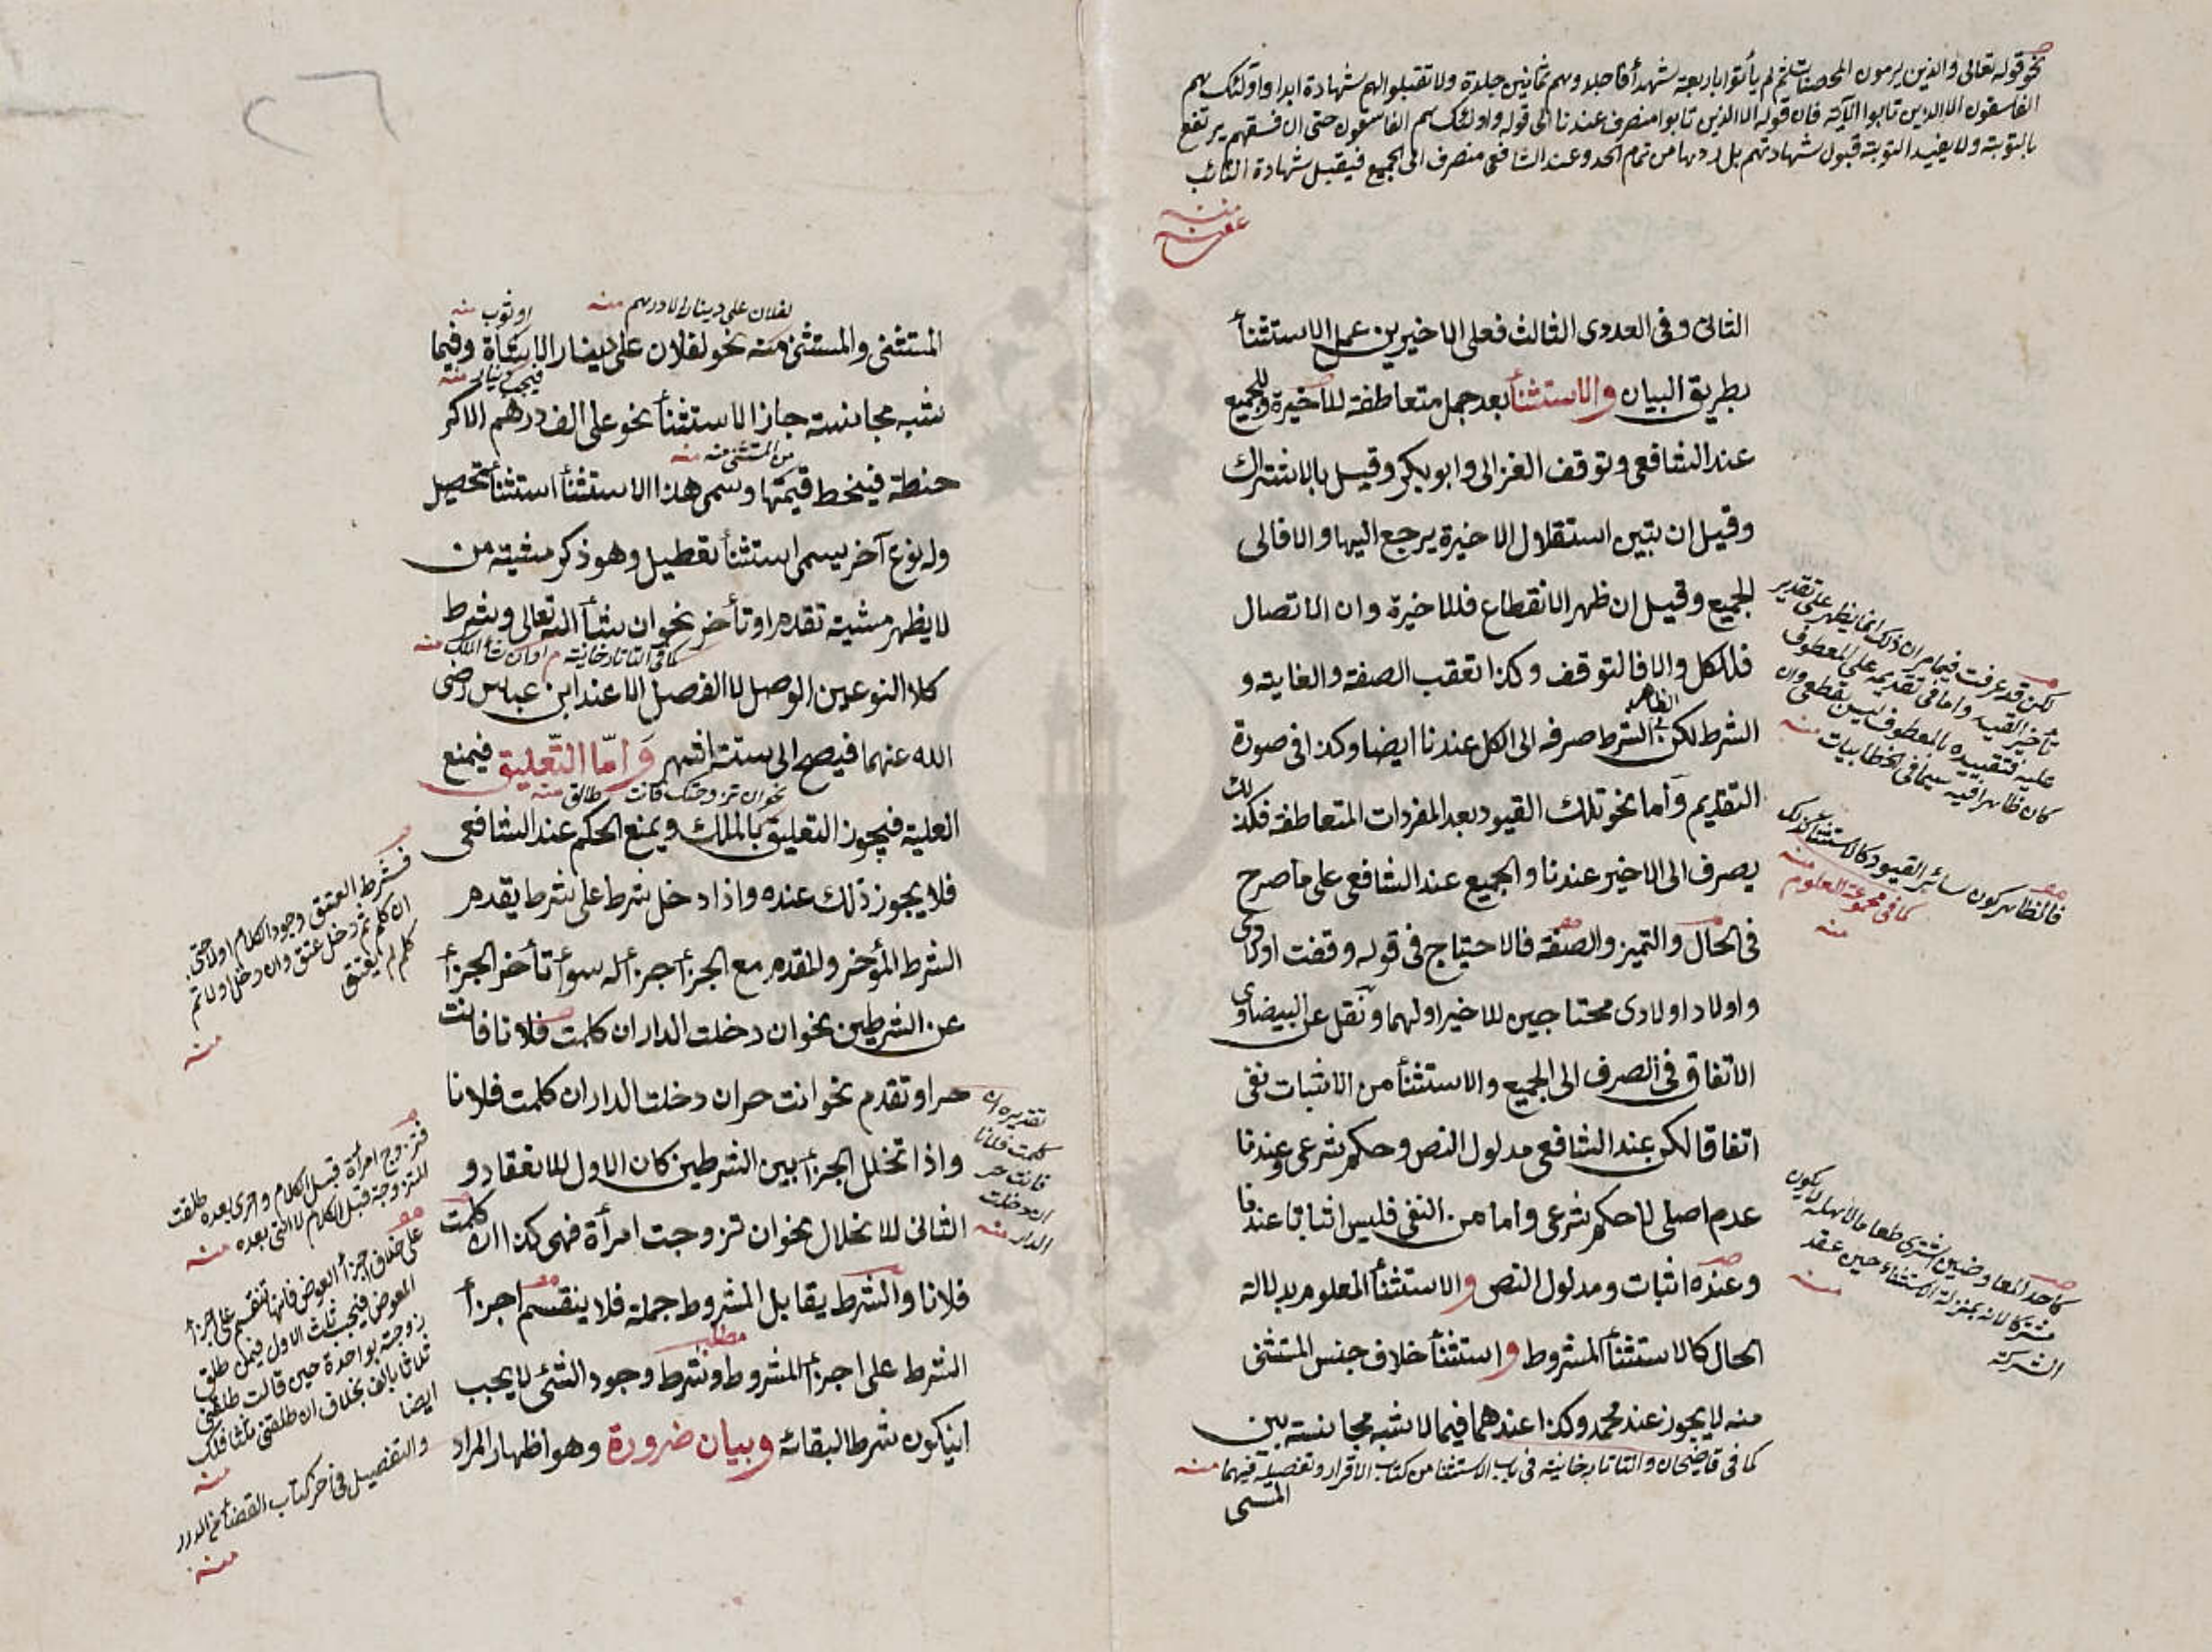 نحو قوله تعالى والذين يرمون المحصنات ثم لم يأتوا باربعة شهدأ فاجلدوهم ثمانين جلدة ولا تقبلوا لهم شهادة ابدا واولئك هم
الفاسقون الا الذين تابوا الآية فان قوله الا الذين تابوا منصرف عندنا الى قوله واولئك هم الفاسقون حتى ان فسقهم يرتفع
بالتوبة ولا يفيد التوبة قبول شهادتهم بل ردها من تمام الحد وعند الشافعى منصرف الى الجميع فيقبل شهادة التائب
منه
عفى عنه
الثانى وفى العددى الثالث فعلى الاخيرين عمل الاستثنأ
بطريق البيان والاستثنأ بعد جمل متعاطفة للاخيرة وللجميع
عند الشافعى وتوقف الغزالى وابو بكر وقيل بالاشتراك
وقيل ان تبين استقلال الاخيرة يرجع اليها والا فالى
الجميع وقيل ان ظهر الانقطاع فللاخيرة وان الاتصال
فللكل والا فالتوقف وكذا تعقب الصفة والغاية و
الشرط لكن الظاهر فى الشرط صرفه الى الكل عندنا ايضا وكذا فى صورة
التقديم وأما نحو تلك القيود بعد المفردات المتعاطفة فكذلك
يصرف الى الاخير عندنا والجميع عند الشافعى على ما صرح
فى الحال والتميز والصفة فالاحتياج فى قوله وقفت اولادى
واولاد اولادى محتاجين للاخير اولهما ونقل عن البيضاوى
الاتفاق فى الصرف الى الجميع والاستثنأ من الاثبات نفى
اتفاقا لكن عند الشافعى مدلول النص وحكم شرعى وعندنا
عدم اصلى لا حكم شرعى واما من النفى فليس اثباتا عندنا
وعنده اثبات ومدلول النص والاستثنأ المعلوم بدلالة
الحال كالاستثنأ المشروط واستثنأ خلاف جنس المستثنى
منه لا يجوز عند محمد وكذا عندهما فيما لا شبه مجانسة بين
كما فى قاضيخان والتاتارخانية فى باب الاستثنا من كتاب الاقرار وتفصيله فيهما منه
المستثنى
لكن قد عرفت فيما مر ان ذلك انما يظهر على تقدير
تأخير القيد واما فى تقديمه على المعطوف
عليه فتقييده بالمعطوف ليس بقطعى وان
كان ظاهرا فيه سيما فى الخطابيات منه
فالظاهر كون سائر القيود كالاستثنا كذلك
كما فى مجموعة العلوم منه
منه
كاحد المعاوضين اشترى طعاما لا يكون
مشتركا لانه بمنزلة الاستثناء حين عقد
الشركة
منه
لفلان على دينار الا درهم منه
او ثوب منه
المستثنى والمستثنى منه نحو لفلان على دينار الا شاة وفيما
فيجب دينار منه
شبه مجانسة جاز الاستثنأ نحو على الف درهم الا كر
من المستثنى منه منه
حنطة فينحط قيمتها وسمى هذا الاستثنأ استثنأ تحصيل
وله نوع آخر يسمى استثنأ تعطيل وهو ذكر مشية من
لا يظهر مشيته تقدم او تأخر نحو ان شأ الله تعالى وشرط
كما فى التاتارخانية او ان شأ الملك منه
كلا النوعين الوصل لا الفصل الا عند ابن عباس رضى
الله عنهما فيصح الى ستة اشهر وَامّا التّعليق فيمنع
نحو ان تزوجتك فانت طالق منه
العلية فيجوز التعليق بالملك ويمنع الحكم عند الشافعى
فلا يجوز ذلك عنده واذا دخل شرط على شرط يقدم
الشرط المؤخر والمقدم مع الجزأ جزأ له سوأ تأخر الجزأ
عن الشرطين نحو ان دخلت الدار ان كلمت فلانا فانت
حر او تقدم نحو انت حر ان دخلت الدار ان كلمت فلانا
واذا تخلل الجزأ بين الشرطين كان الاول للانعقاد و
الثانى للانحلال نحو ان تزوجت امرأة فهى كذا ان كلمت
فلانا والشرط يقابل المشروط جملة فلا ينقسم اجزأ
مطلب
الشرط على اجزأ المشروط وشرط وجود الشئ لا يجب
ان يكون شرطا لبقائه وبيان ضرورة وهو اظهار المراد
تقديره ان
كلمت فلانا
فانت حر
ان دخلت
الدار منه
فشرط العتق وجود الكلام اولا حتى
ان كلم ثم دخل عتق وان دخل اولا ثم
كلم لم يعتق
منه
فتزوج امرأة قبل الكلام واخرى بعده طلقت
المتزوجة قبل الكلام لا التى بعده منه
على خلاف اجزأ العوض فانها تنقسم على اجزأ
المعوض فيجب ثلث الاول فيمن طلق
زوجته بواحدة حين قالت طلقنى
ثلاثا بالف بخلاف ان طلقتنى ثلثا فلك
ايضا
منه
والتفصيل فى آخر كتاب القضأ من الدرر
منه